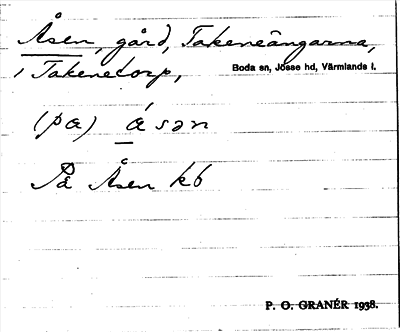 Åsen, gård, Takeneängarna,
i Takenetorp, Boda sn, Jösse hd, Värmlands l.
(pα) ásən
På Åsen kb
P. O. GRANÉR 1938.